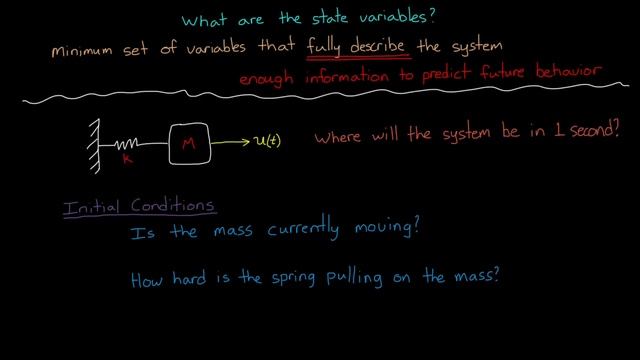 What are the state variables?
minimum set of variables that fully describe the system
enough information to predict future behavior
K
M
u(t)
Where will the system be in 1 second?
Initial Conditions
Is the mass currently moving?
How hard is the spring pulling on the mass?